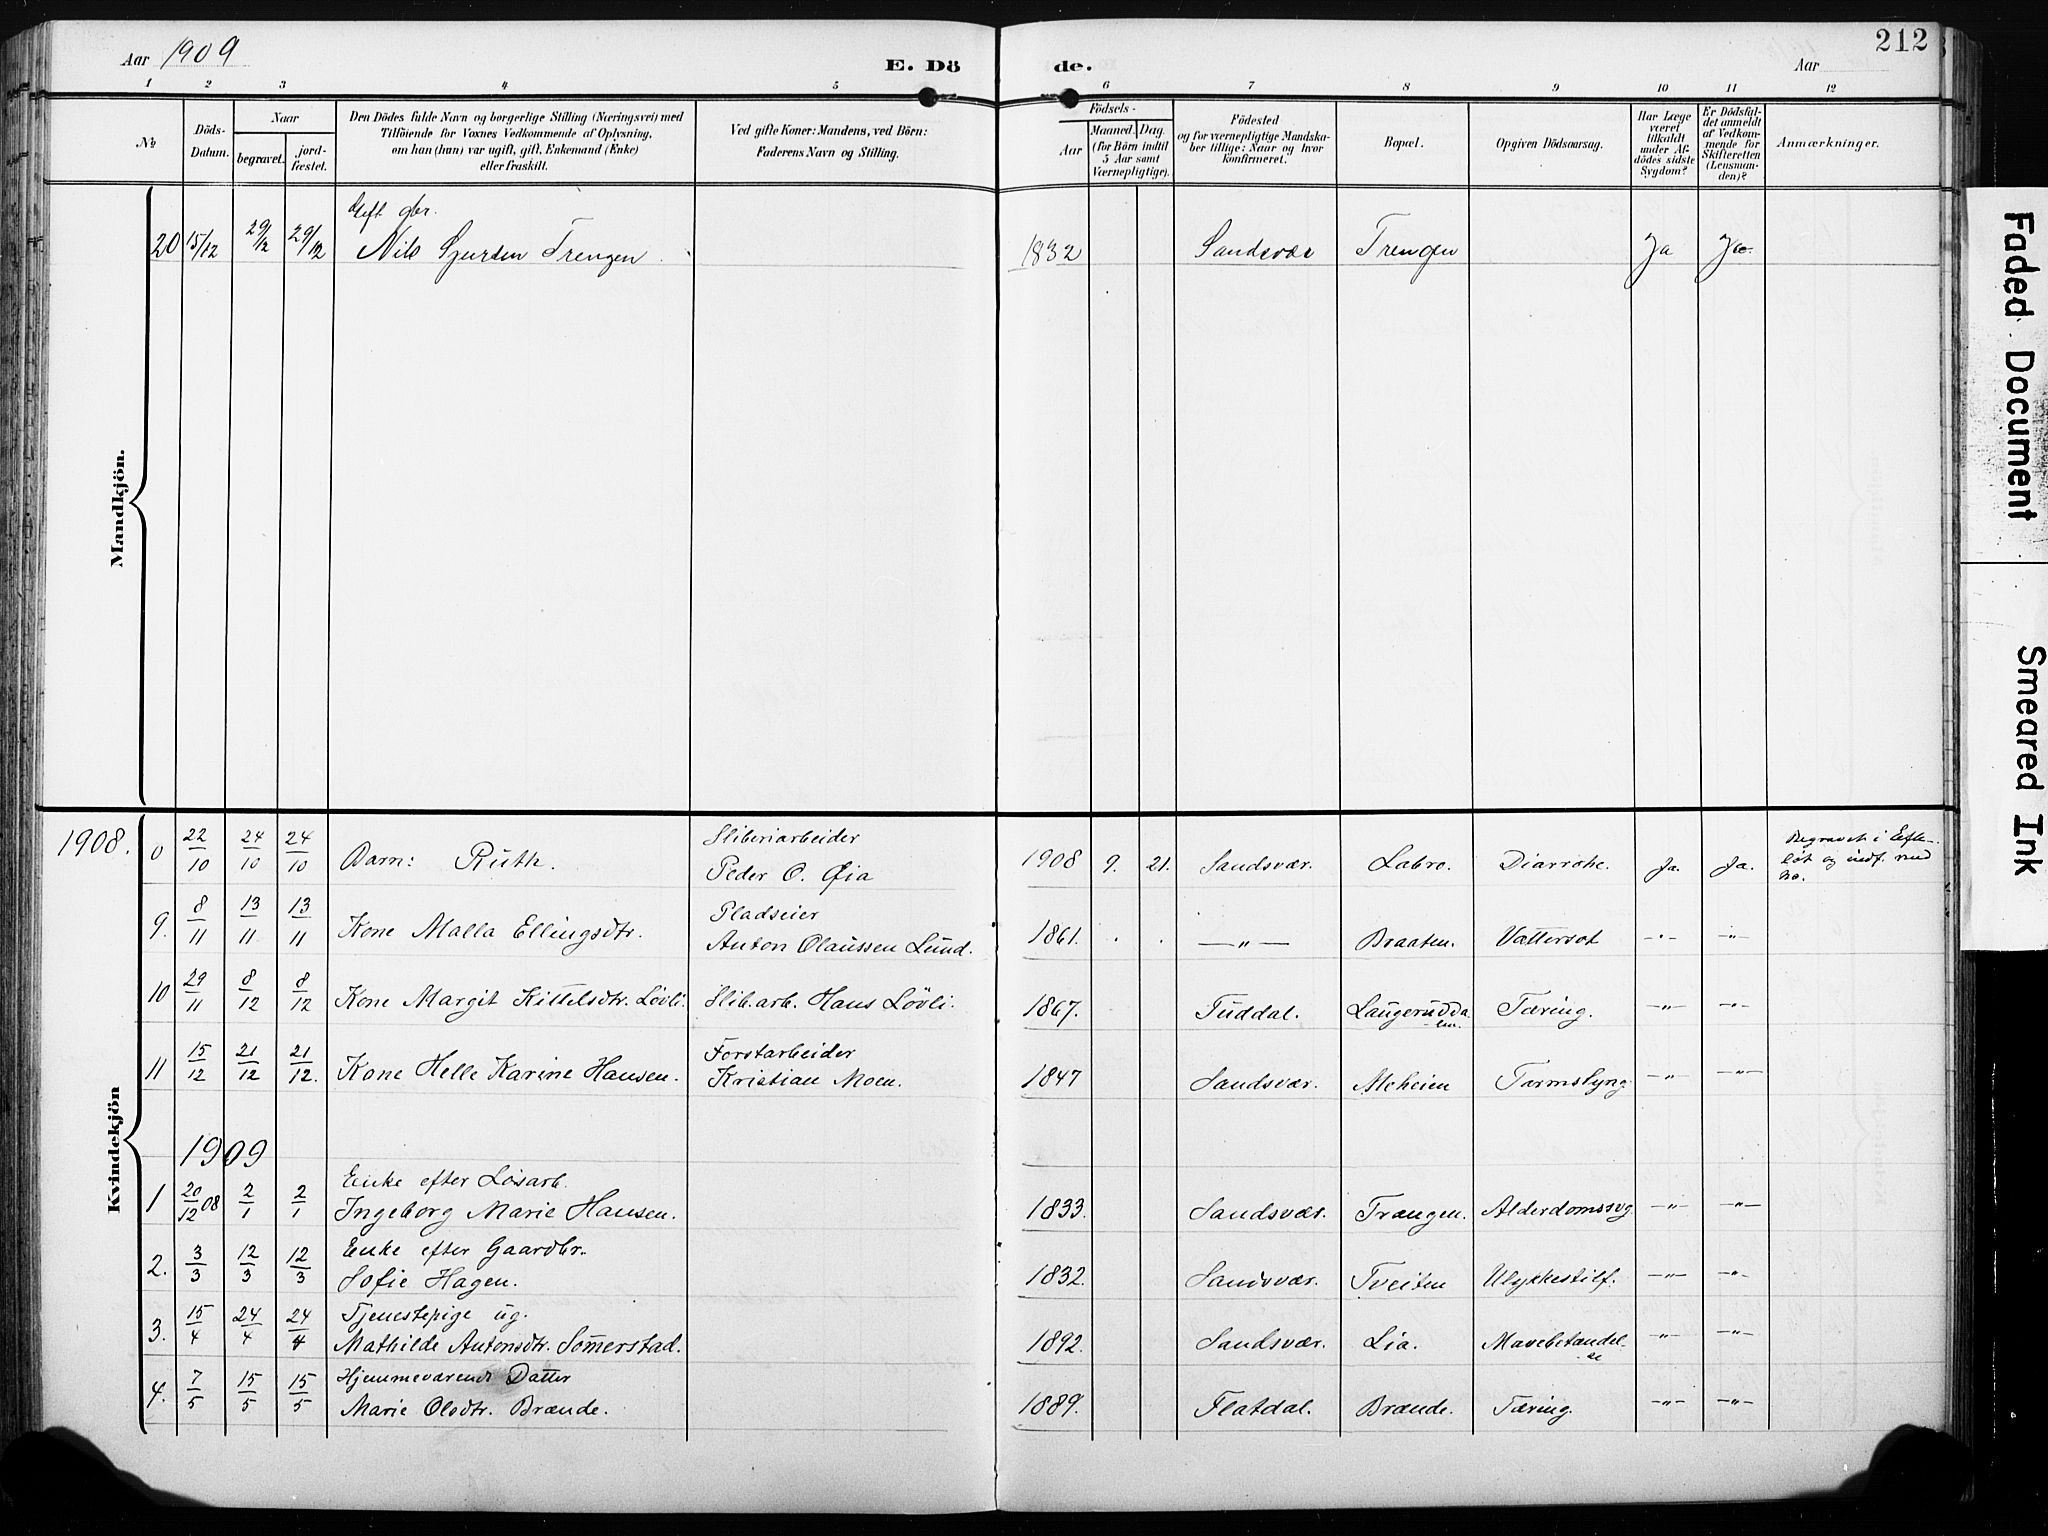 Aar 1909
E. Dö
de.
Aar
212
1 2 3 4 5 6 7 8 9 10 11 12
No
Döds-
Datum.
Naar
begravet.
jord-
fæstet.
Den Dödes fulde Navn og borgerlige Stilling (Næringsvei) med
Tilföiende for Voxnes Vedkommende af Oplysning,
om han (hun) var ugift, gift, Enkemand (Enke)
eller fraskilt.
Ved gifte Koner: Mandens, ved Börn:
Faderens Navn og Stilling.
Födsels-
Aar
Maaned. Dag.
(for Börn indtil
5 Aar samt
Værnepligtige).
Födested
og for værnepligtige Mandska-
ber tillige: Naar og hvor
konfirmeret.
Bopæl.
Opgiven Dödsaarsag.
Har Læge
været
tilkaldt
under Af-
dödes sidste
Sygdom?
Er Dödsfal-
det anmeldt
af Vedkom-
mende for
Skifteretten
(Lensman-
den)?
Anmærkninger.
Mandkjön.
Gift gbr.
20 15/12 29/12 29/12 Nils Sjursen Trengen 1832 Sandsvær Trengen Ja Ja
Kvindekjön
1908.
Sliberiarbeider
0 22/10 24/10 24/10 Barn: Ruth. Peder O. Øia 1908 9. 21. Sandsvær. Labro. Diarrohe. Ja. Ja. Begravet i Efte-
löt og indf. med
No.
Pladseier
9. 8/11 13/11 13/11 Kone Malla Ellingsdtr. Anton Olaussen Lund. 1861. — " — Braaten. Vattersot - " - - " -
10 29/11 8/12 8/12 Kone Margit Kittelsdtr. Løvli. Slib.arb. Hans Løvli. 1867. Tuddal. Laugerudda-
len. Tæring. - " - - " -
Forstarbeider
11 15/12 21/12 21/12. Kone Helle Karine Hansen. Kristian Moen. 1847 Sandsvær. Meheien Tarmslyng - " - - " -
1909
Enke efter Løsarb.
1 20/12 08 2/1 2/1 Ingeborg Marie Hansen. 1833. Sandsvær. Trangen. Alderdomssvg - " - - " -
Enke efter Gaardbr.
2. 3/3 12/3 12/3 Sofie Hagen. 1832. Sandsvær. Tveiten Ulykkestilf. - " - - " -
Tjenestepige ug.
3. 15/4 24/4 24/4 Mathilde Antonsdtr. Sömerstad. 1892. Sandsvær. Lia. Mavebetændel-
se - " - - " -
Hjemmeværende Datter
4. 7/5 15/5 15/5 Marie Olsdtr. Brænde. 1889. Flatdal. Brænde. Tæring. - " - - " -
Faded Document
Smeared Ink